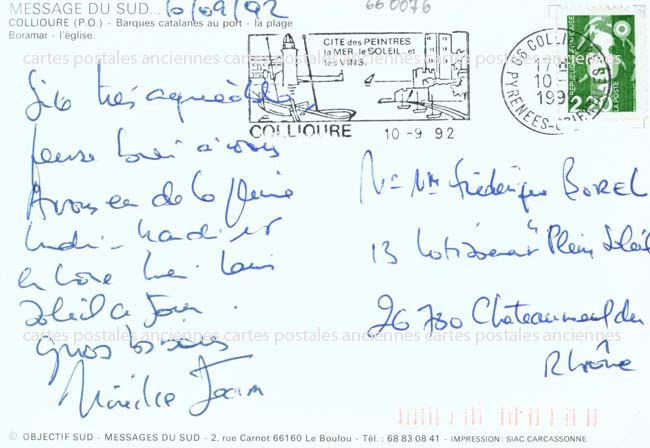 MESSAGE DU SUD... 10/09/92
COLLIOURE (P.O.) - Barques catalanes au port - la plage
Boramar - l'église.
660076
CITE des PEINTRES
la MER, le SOLEIL et
les VINS
COLLIOURE 10-9 92
66 COLLIOURE
10-9
1992
PYRENEES-ORIENTALES
REPUBLIQUE FRANÇAISE
2,20
LA POSTE
cartes postales anciennes cartes postales anciennes cartes postales anciennes
Site très agréable
pense bien à vous
Avons eu de la pluie
lundi - mardi et
soleil ce jour.
gros bisous
Mireille Jean
Mr Mme Frédérique BOREL
13 Lotissement "Plein Soleil
26780 Chateauneuf du
Rhône
cartes postales anciennes cartes postales anciennes cartes postales anciennes
© OBJECTIF SUD - MESSAGES DU SUD - 2, rue Carnot 66160 Le Boulou - Tél. : 68 83 08 41 - IMPRESSION : SIAC CARCASSONNE.